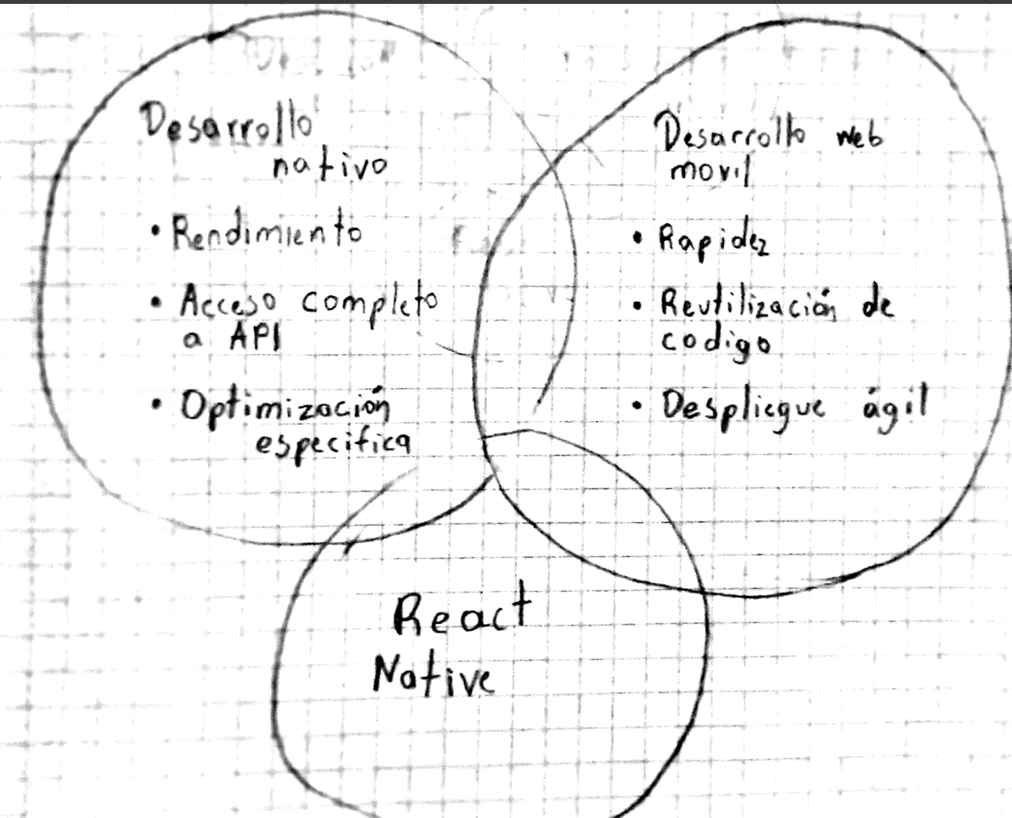 Desarrollo
nativo
• Rendimiento
• Acceso completo
a API
• Optimización
especifica
Desarrollo web
movil
• Rapidez
• Reutilización de
codigo
• Despliegue ágil
React
Native